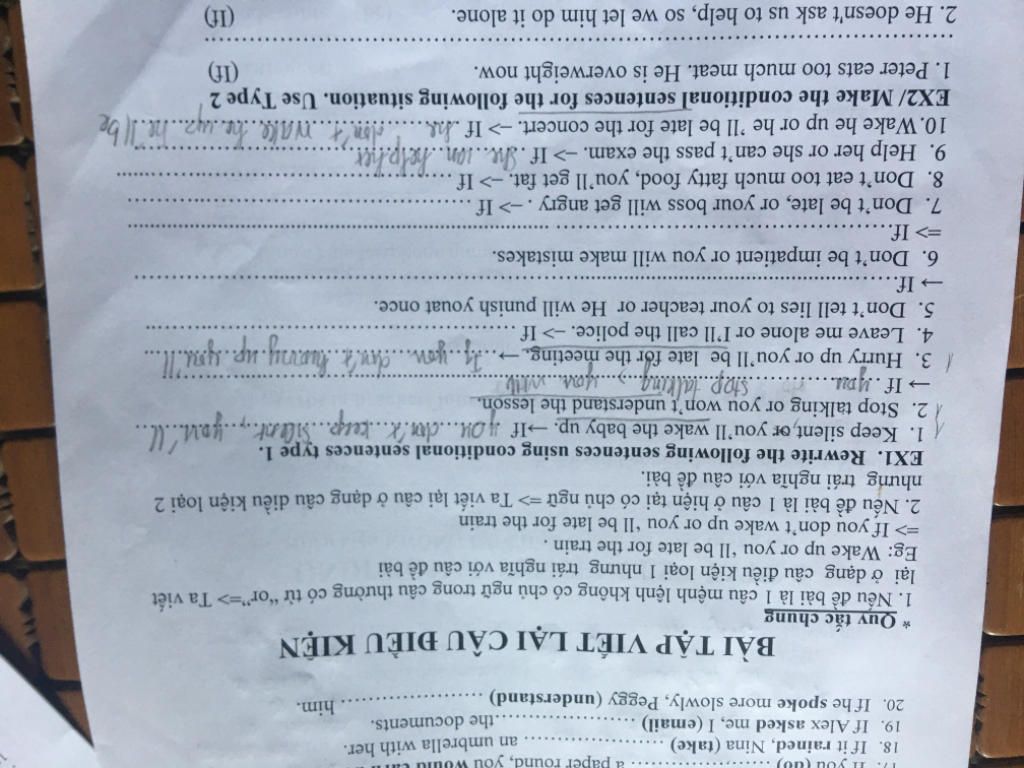 17. If you (do) .................. a paper round, you would
18. If it rained, Nina (take) .................. an umbrella with her.
19. If Alex asked me, I (email) ..................the documents.
20. If he spoke more slowly, Peggy (understand) .................. him.
BÀI TẬP VIẾT LẠI CÂU ĐIỀU KIỆN
* Quy tắc chung
1. Nếu đề bài là 1 câu mệnh lệnh không có chủ ngữ trong câu thường có từ “or”=> Ta viết
lại ở dạng câu điều kiện loại 1 nhưng trái nghĩa với câu đề bài
Eg: Wake up or you ‘ll be late for the train .
=> If you don’t wake up or you ‘ll be late for the train
2. Nếu đề bài là 1 câu ở hiện tại có chủ ngữ => Ta viết lại câu ở dạng câu điều kiện loại 2
nhưng trái nghĩa với câu đề bài.
EX1. Rewrite the following sentences using conditional sentences type 1.
1. Keep silent, or you’ll wake the baby up. →If you don't keep silent, you'll
2. Stop talking or you won’t understand the lesson.
→ If you stop talking, you will
3. Hurry up or you’ll be late for the meeting. → If you don't hurry up you'll
4. Leave me alone or I’ll call the police. –> If ..................
5. Don’t tell lies to your teacher or He will punish youat once.
→ If..................
6. Don’t be impatient or you will make mistakes.
=> If..................
7. Don’t be late, or your boss will get angry . –> If ..................
8. Don’t eat too much fatty food, you’ll get fat. –> If ..................
9. Help her or she can’t pass the exam. –> If she can help her
10. Wake he up or he ’ll be late for the concert. –> If he don't wake he up he'll be
EX2/ Make the conditional sentences for the following situation. Use Type 2
1. Peter eats too much meat. He is overweight now. (If)
..................
2. He doesn't ask us to help, so we let him do it alone. (If)